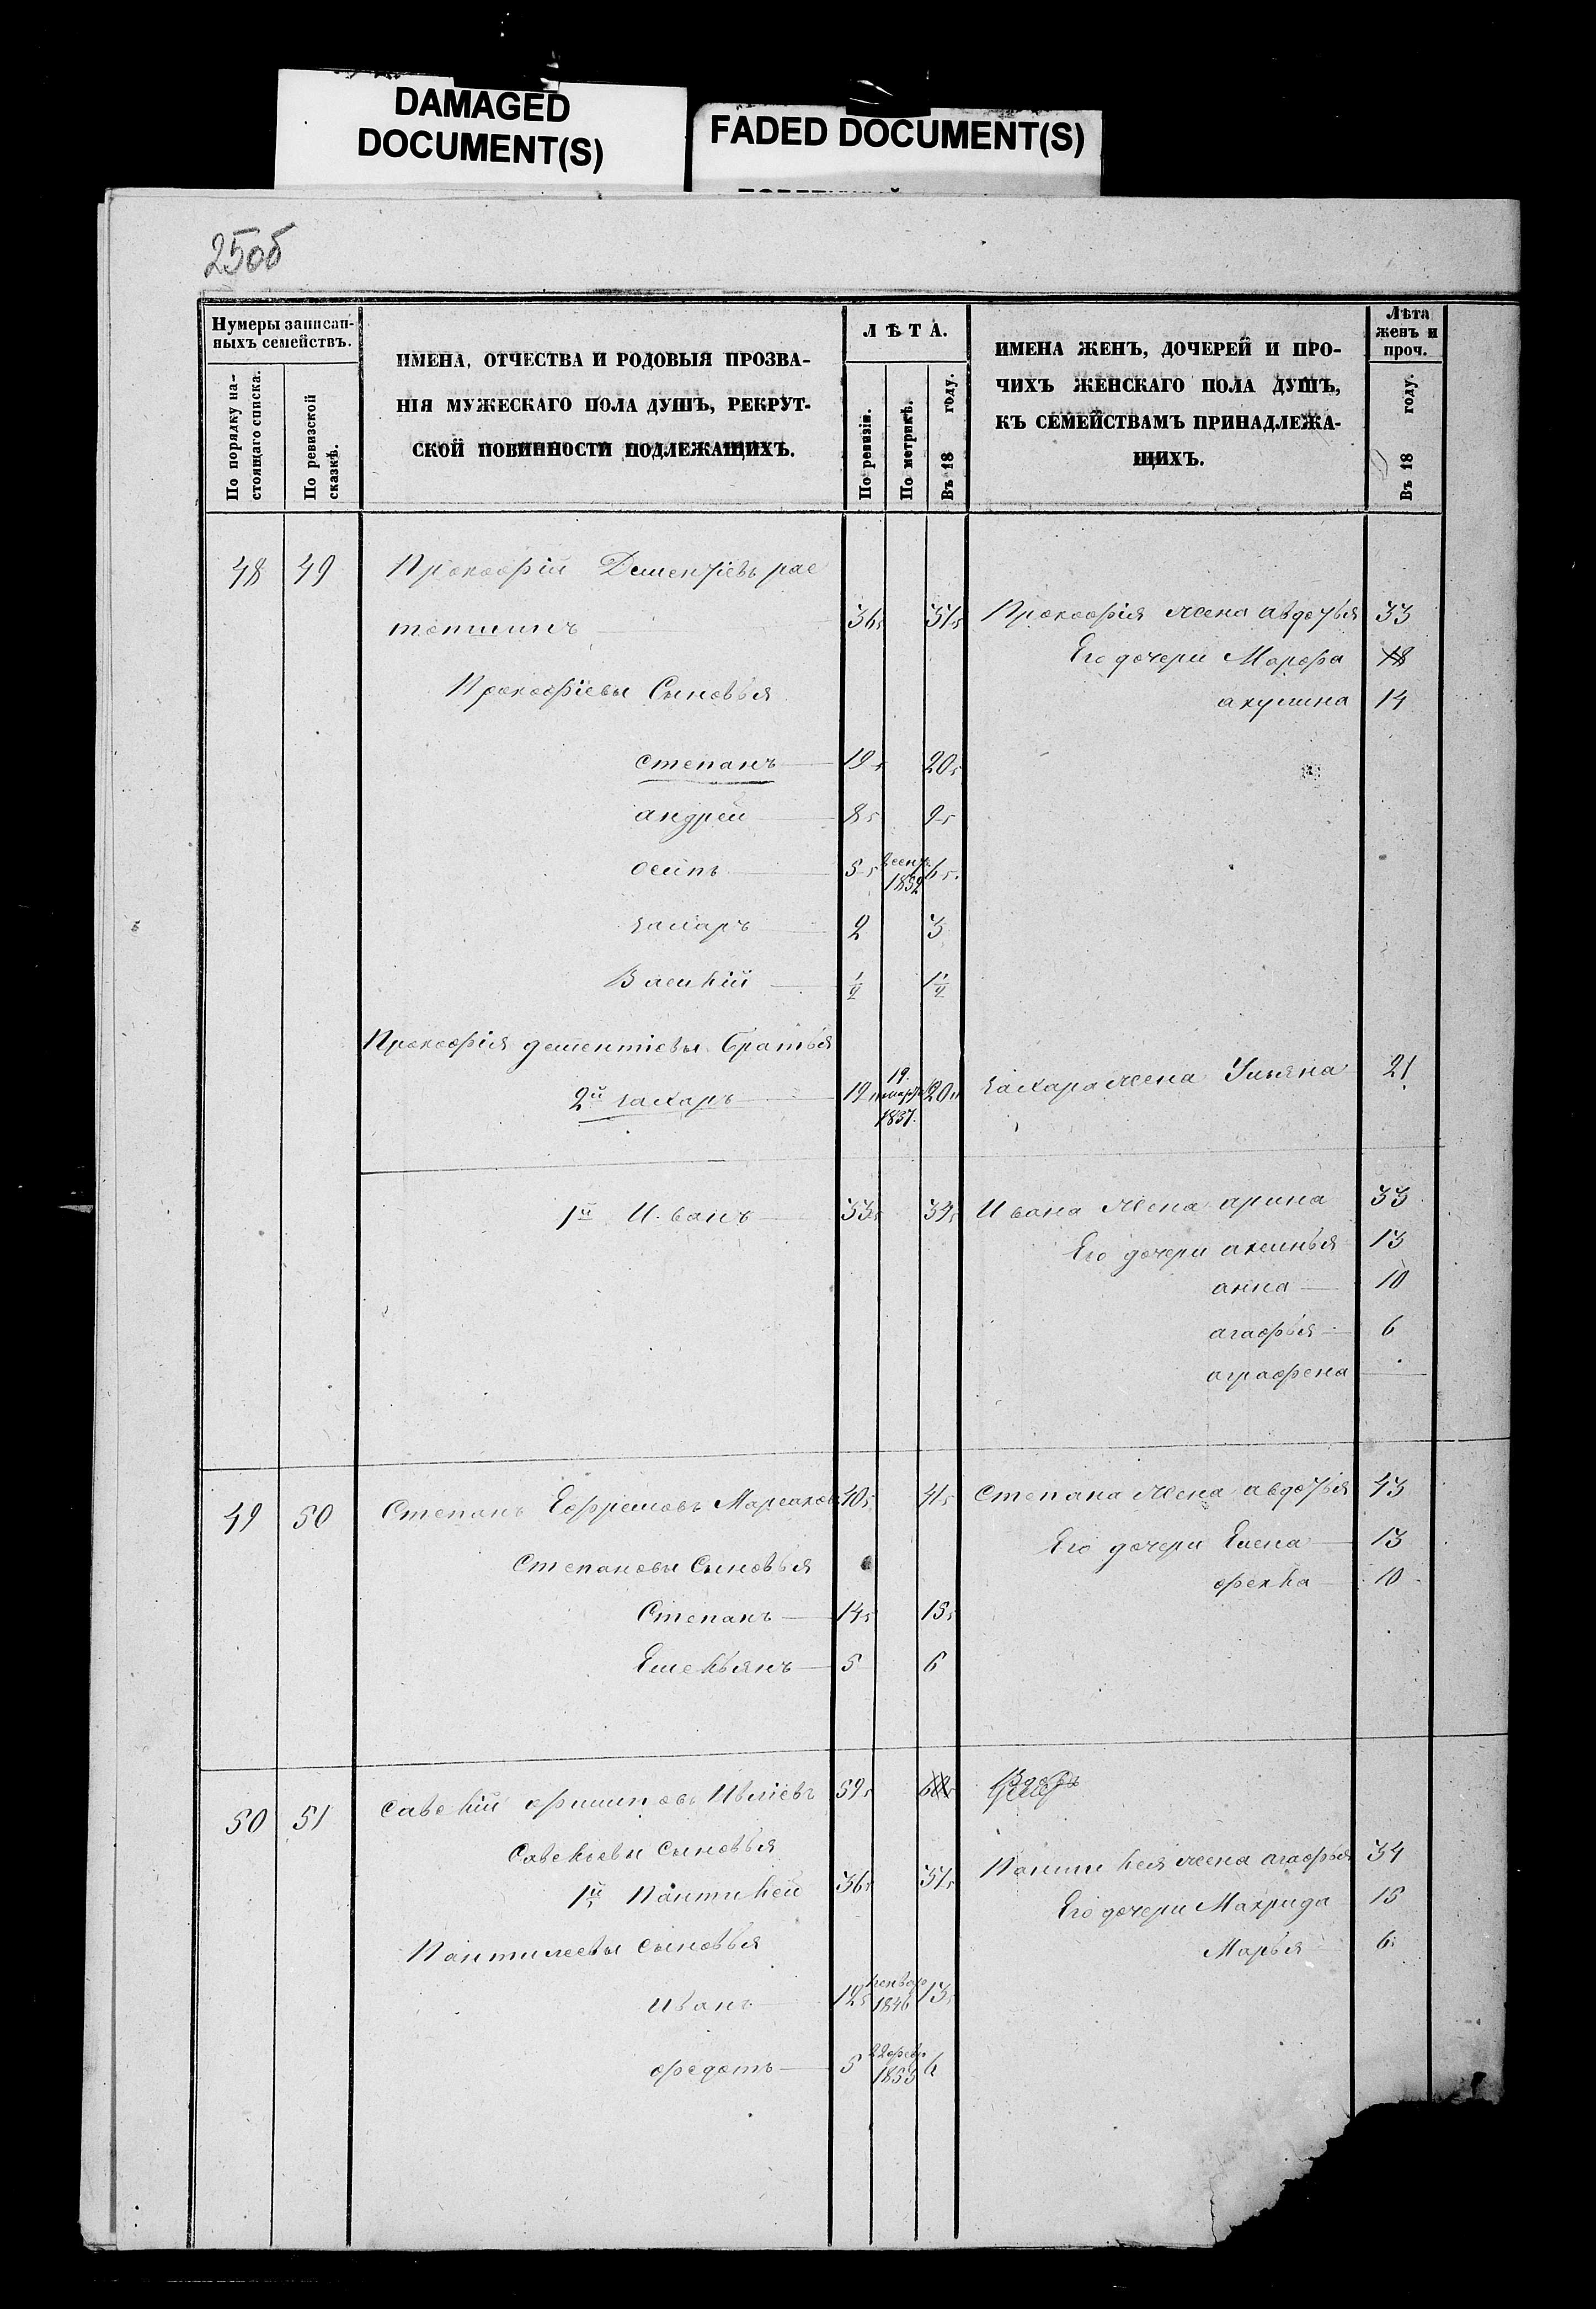 DAMAGED
DOCUMENT(S)
FADED DOCUMENT(S)
250б
Нумеры записан-
ныхъ семействъ.
По порядку на-
стоящаго списка.
По ревизской
сказкѣ.
ИМЕНА, ОТЧЕСТВА И РОДОВЫЯ ПРОЗВА-
НІЯ МУЖЕСКАГО ПОЛА ДУШЪ, РЕКРУТ-
СКОЙ ПОВИННОСТИ ПОДЛЕЖАЩИХЪ.
ЛѢТА.
По ревизіи.
По метрикѣ.
Въ 18 году.
ИМЕНА ЖЕНЪ, ДОЧЕРЕЙ И ПРО-
ЧИХЪ ЖЕНСКАГО ПОЛА ДУШЪ,
КЪ СЕМЕЙСТВАМЪ ПРИНАДЛЕЖА-
ЩИХЪ.
Лѣта
женъ и
проч.
Въ 18 году.
48 49 Прокофій Дементіевъ рас
топшинъ 36 37 Прокофія жена авдотья 33
Его дочери Марфа 18
Прокофіевы Сыновья акулина 14
степанъ 19 20
андрей 8 9
осипъ 5 1852 6
захаръ 2 3
Василій
Прокофія дементіевы братья
2й захаръ 19 19 марта 1837. 20 захара жена Ульяна 21
1й Иванъ 33 34 Ивана жена арина 33
Его дочери аксинья 13
анна 10
агафья 6
аграфена
49 50 Степанъ Ефремовъ 40 41 степана жена авдотья 43
Степановы сыновья Его дочери Елена 13
фекла 10
Степанъ 14 15
Емельянъ 5 6
50 51 савелій филиповъ 59 60
Савельевы сыновья
1й Пантилей 36 37 Пантилея жена агафья 34
Его дочери Макрида 15
Пантилеевы сыновья Марья 6
Иванъ 12 1846 13
федотъ 5 22 февр 1853 6